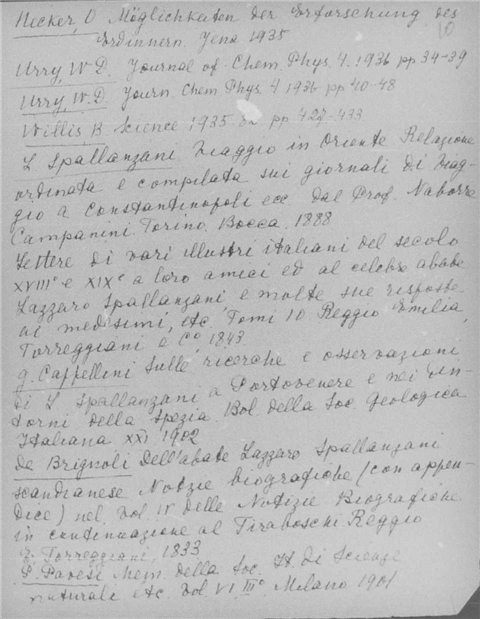 Hecker, O Möglichkeiten der Erforschung des
Erdinnern. Jena 1935
Urry, W D. Journal of. Chem. Phys 4. 1936 pp 34-39
Urry, W. D. Journ. Chem Phys 4 1936 pp 40-48
Willis B. Science 1935 82 pp 427-433
L Spallanzani Viaggio in Oriente Relazione
ordinata e compilata sui giornali di Viag-
gio a Constantinopoli ecc dal Prof. Naborre
Campanini Torino, Bocca, 1888
Lettere di vari illustri italiani del secolo
XVIII° e XIX° a loro amici ed al celebre abate
Lazzaro Spallanzani e molte sue risposte
ai medesimi, etc Tomi 10 Reggio Emilia,
Torreggiani e Co 1843
G. Cappellini sulle ricerche e osservazioni
di L Spallanzani a Portovenere e nei din-
torni della Spezia Bol. della Soc Geologica
Italiana XXI 1902
De Brignoli Dell'abate Lazzaro Spallanzani
scandianese Notzie biografiche (con appen-
dice) nel Vol IV delle Notizie Biografiche
in continuazione al Tiraboschi Reggio
E. Torreggiani, 1833
P. Pavesi Mem. della Soc It. di Scienze
naturali etc. Vol VI III° Milano 1901